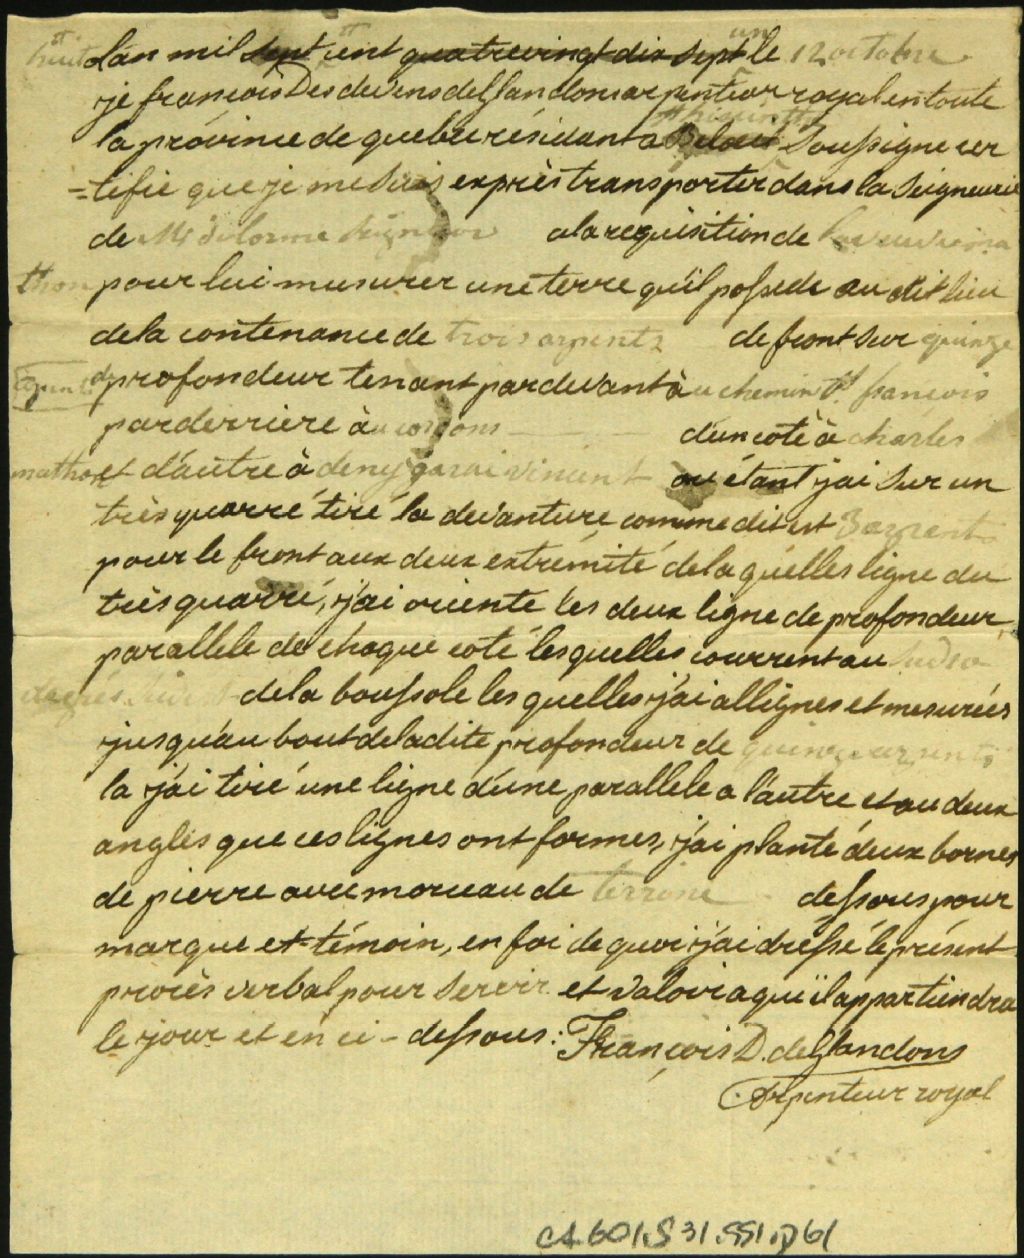 huit Lan mil sept cent quatrevingt dix sept le un 12 octobre
je francois Desdevens deGlandons arpenteur royal en toute
la province de quebec résidant a St hiacinthe Belœil Soussigne cer
=tifie que je me suis exprès transporter dans la Seigneurie
de Mr delorme seigneur a la requisition de la veuve ma
thon pour lui musurer une terre qu'il possede au dit lieu
de la contenance de trois arpents de front sur quinze
arpents profondeur tenant par devant à u chemin St. françois
par derriere à u cordons d'un coté à charles
mathon et d'autre à deny garai vincent ou étant j'ai sur un
très quarré tiré la devanture comme dit est 3 arpents
pour le front aux deux extrémité de la quelles ligne du
très quarré, j'ai oriente les deux ligne de profondeur
parallele de chaque coté lesquelles courrent au sud 20
degrés sud est de la boussole les quelles j'ai allignes et mesurées
jusqu'au bout de la dite profondeur de quinze arpents
la j'ai tiré une ligne d'une parallele a l'autre et au deux
angles que ces lignes ont formes, j'ai planté deux bornes
de pierre avec morceau de terrine dessous pour
marque et témoin, en foi de quoi j'ai dréssé le présent
procès verbal pour servir et valoir a qui il appartiendra
le jour et en ci-dessous: François D. deGlandons
Arpenteur royal
CA 601, S 31, SS1, D 61